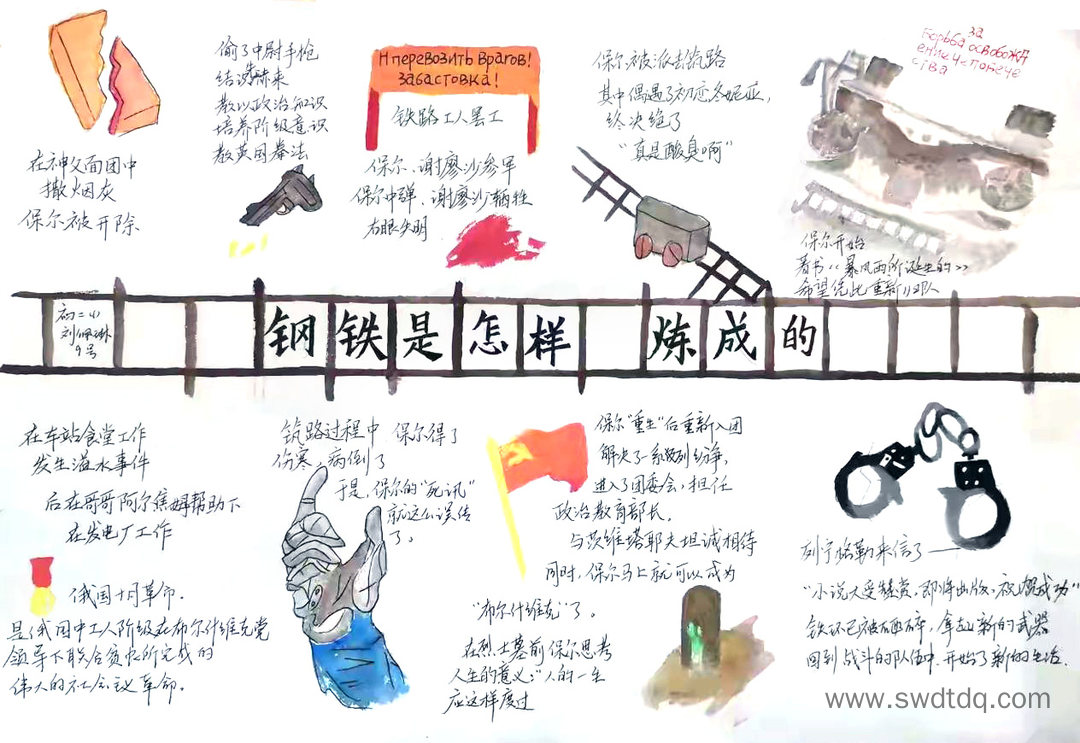 在神父面团中
撒烟灰
保尔被开除
偷了中尉手枪
结识赫来
教以政治知识
培养阶级意识
教英国拳法
Н перевозить врагов!
Забастовка!
铁路工人罢工
保尔、谢廖沙参军
保尔中弹、谢廖沙牺牲
右眼失明
保尔被派去筑路
其中偶遇了初恋冬妮亚,
终决绝了
"真是酸臭啊"
за
Борьба освобожд
ение человече
ства
保尔开始
著书《暴风雨所诞生的》
希望凭此重新归队
高二小
刘佩琳
9号
钢铁是怎样 炼成的
在车站食堂工作
发生溢水事件
后在哥哥阿尔焦姆帮助下
在发电厂工作
俄国十月革命.
是俄国中工人阶级在布尔什维克党
领导下联合贫农所完成的
伟大的社会主义革命.
筑路过程中 保尔得了
伤寒,病倒了
于是,保尔的"死讯"
就这么误传
了。
保尔"重生"后重新入团
解决了一系列纷争,
进入了团委会,担任
政治教育部长.
与茨维塔耶夫坦诚相待
同时,保尔马上就可以成为
"布尔什维克"了。
在烈士墓前保尔思考
人生的意义:"人的一生
应这样度过
列宁格勒来信了——
"小说大受赞赏,即将出版,祝贺成功"
铁环已被砸碎,拿起新的武器
回到战斗的队伍中,开始了新的生活.
www.swdtdq.com